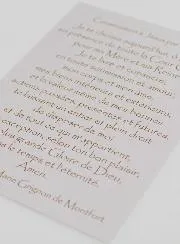 Consécration à Jésus par
Je te choisis aujourd'hui, ô
en présence de toute la Cour
pour ma Mère et ma Reine
Je te livre et consacre,
en toute soumission et amour,
mon corps et mon âme,
mes biens intérieurs et extérieurs,
et la valeur même de mes
actions passées, présentes et futures,
te laissant un entier et plein droit
de disposer de moi
et de tout ce qui m'appartient,
exception, selon ton bon plaisir,
plus grande Gloire de Dieu,
le temps et l'éternité.
Amen.
Grignion de Montfort